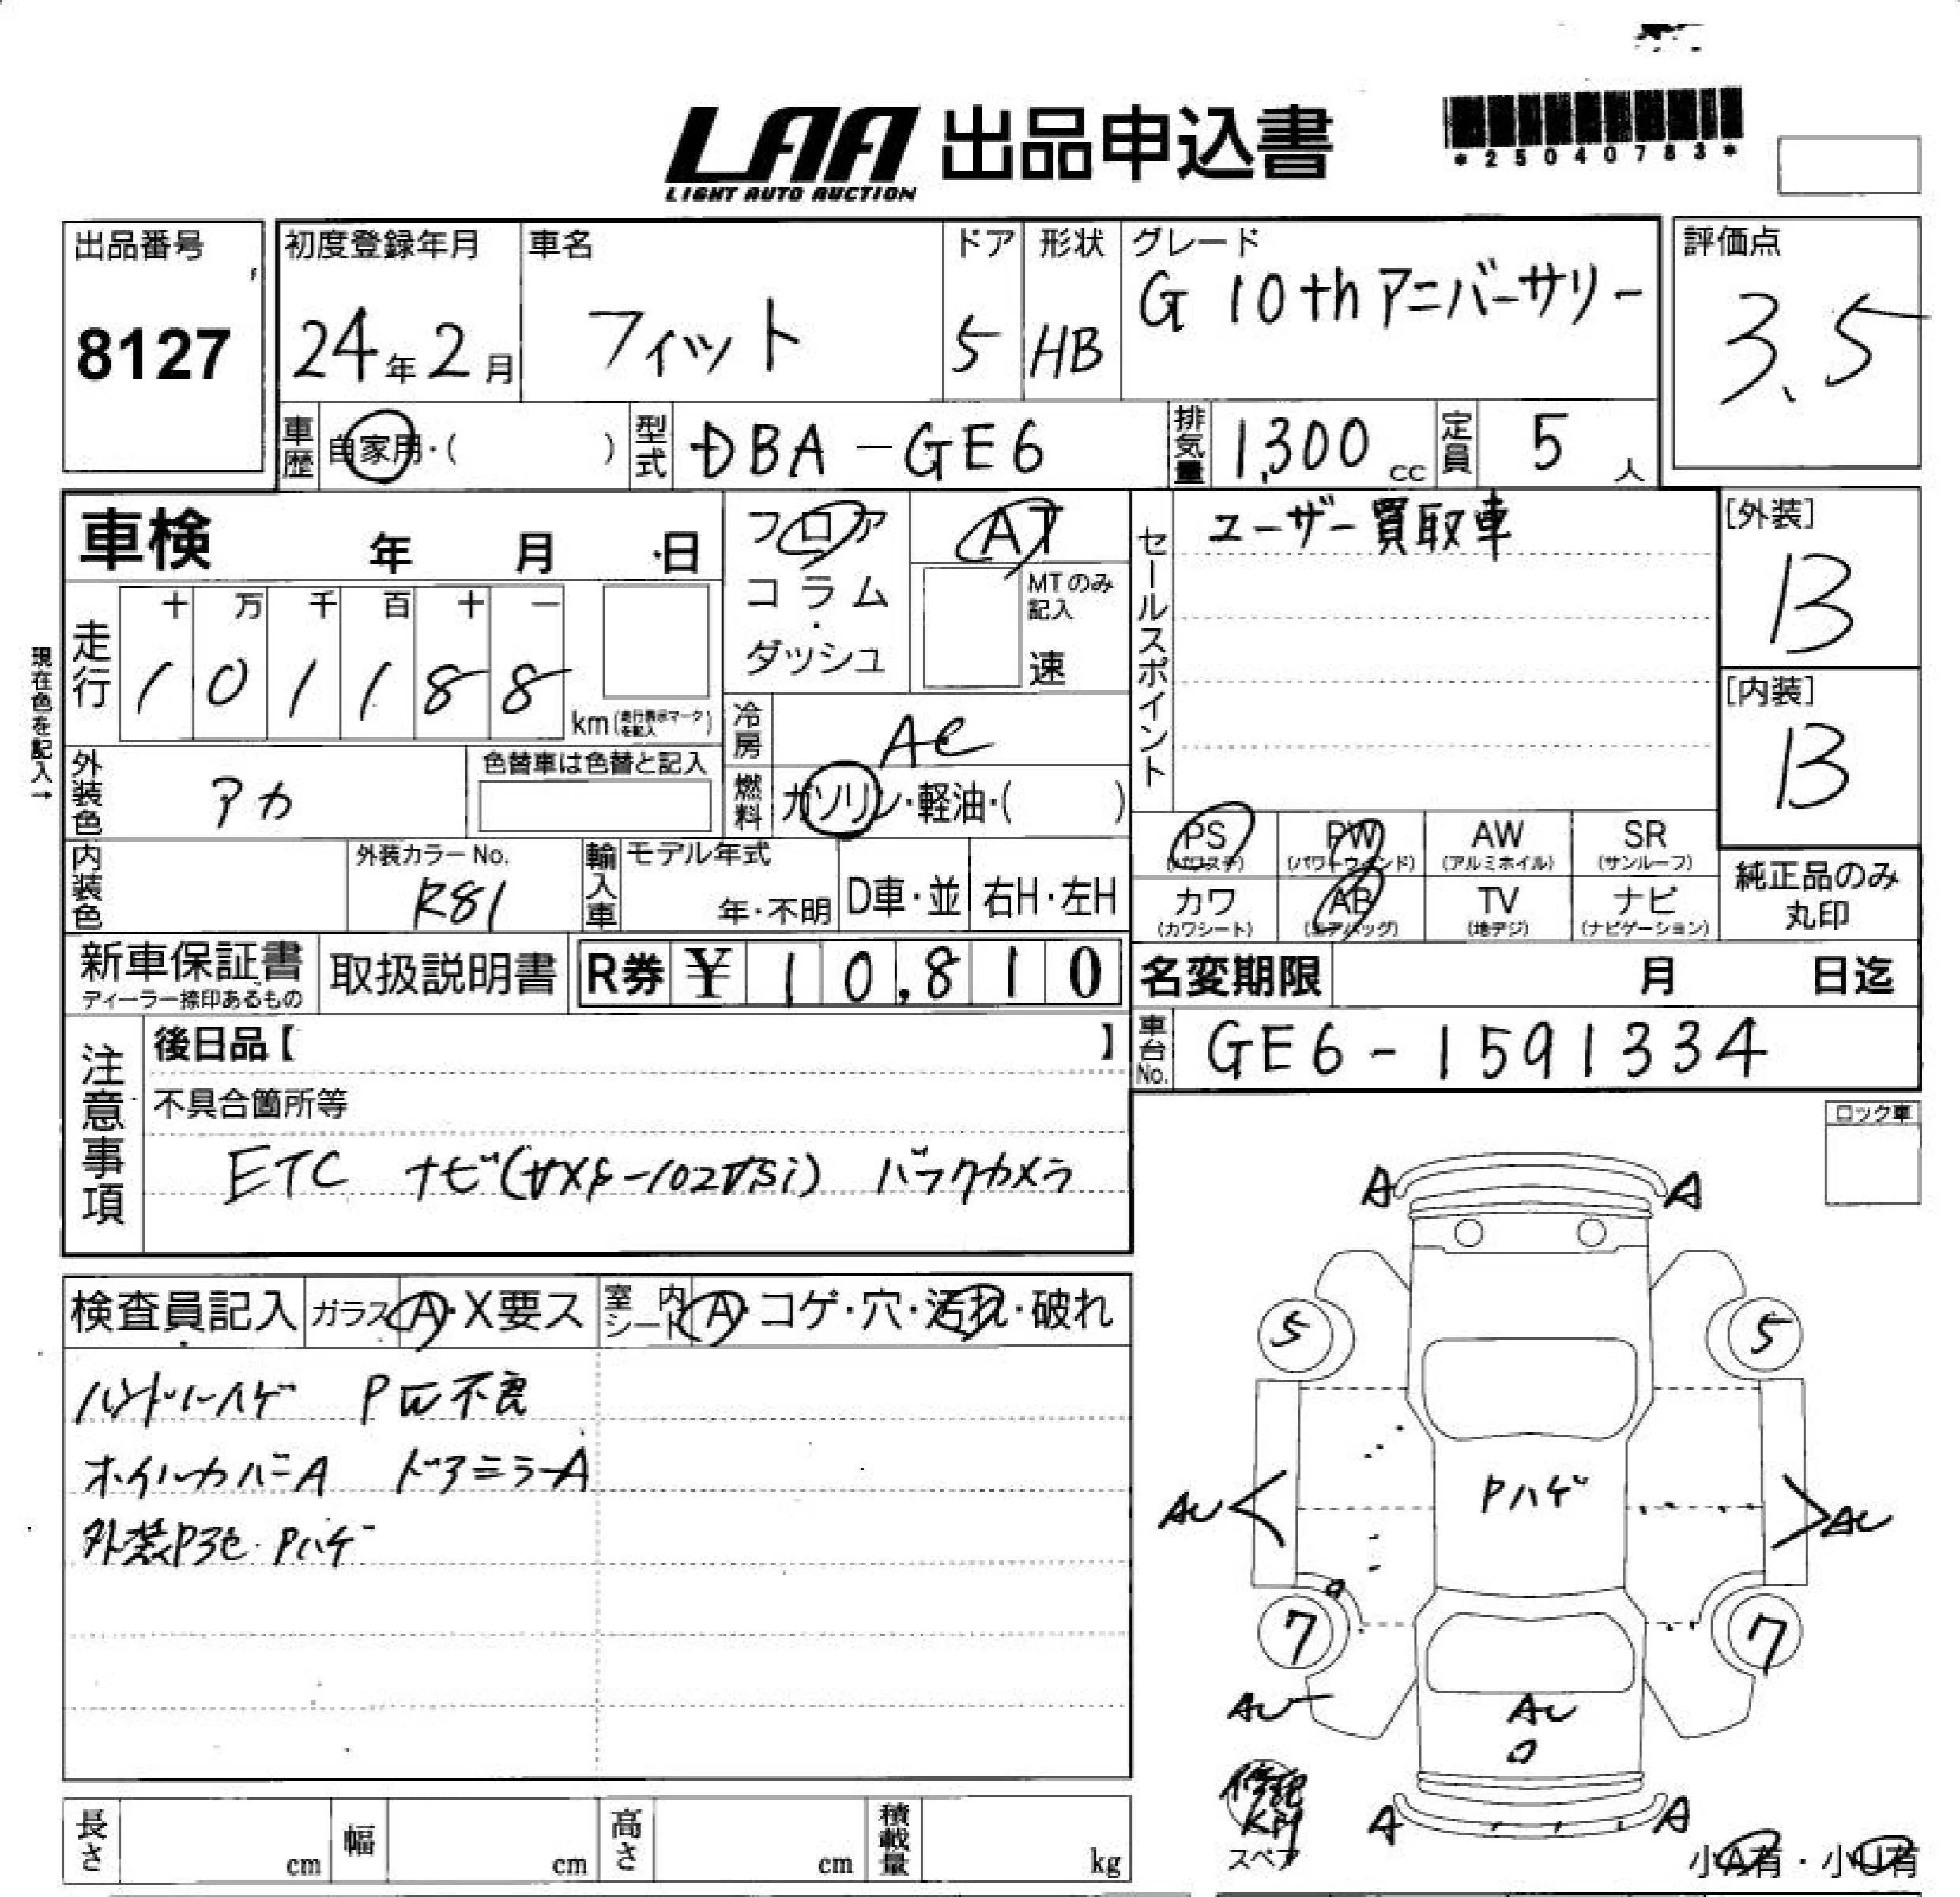 LAA 出品申込書
LIGHT AUTO AUCTION
*25040783*
出品番号
8127
初度登録年月
24年2月
車名
フィット
ドア
5
形状
HB
グレード
G 10thアニバーサリー
評価点
3.5
車歴
自家用・( )
型式
DBA-GE6
排気量
1,300 cc
定員
5 人
車検 年 月 日
フロア
コラム
・
ダッシュ
AT
MTのみ
記入
速
セールスポイント
ユーザー買取車
[外装]
B
[内装]
B
現在色を記入→
走行
十 万 千 百 十 一
1 0 1 1 8 8
km(走行表示マークを記入)
冷房
AC
燃料
ガソリン・軽油・( )
外装色
アカ
色替車は色替と記入
内装色
外装カラーNo.
R81
輸入車
モデル年式
年・不明
D車・並
右H・左H
PS
(パワステ)
PW
(パワーウィンド)
AW
(アルミホイル)
SR
(サンルーフ)
カワ
(カワシート)
AB
(エアバッグ)
TV
(地デジ)
ナビ
(ナビゲーション)
純正品のみ
丸印
新車保証書
ディーラー捺印あるもの
取扱説明書
R券 ¥ 10,810
名変期限 月 日迄
車台No.
GE6-1591334
注意事項
後日品【 】
不具合箇所等
ETC ナビ( ) バックカメラ
ロック車
検査員記入
ガラス A・X要ス
室内
シート
A・コゲ・穴・汚れ・破れ
ハンドルハゲ PW不良
ホイルカバーA ドアミラーA
外装P3セ・Pハゲ
A A
5 5
Pハゲ
AU AU
7 7
AU AU
A A
スペア
小A有・小U有
長さ cm
幅 cm
高さ cm
積載量 kg